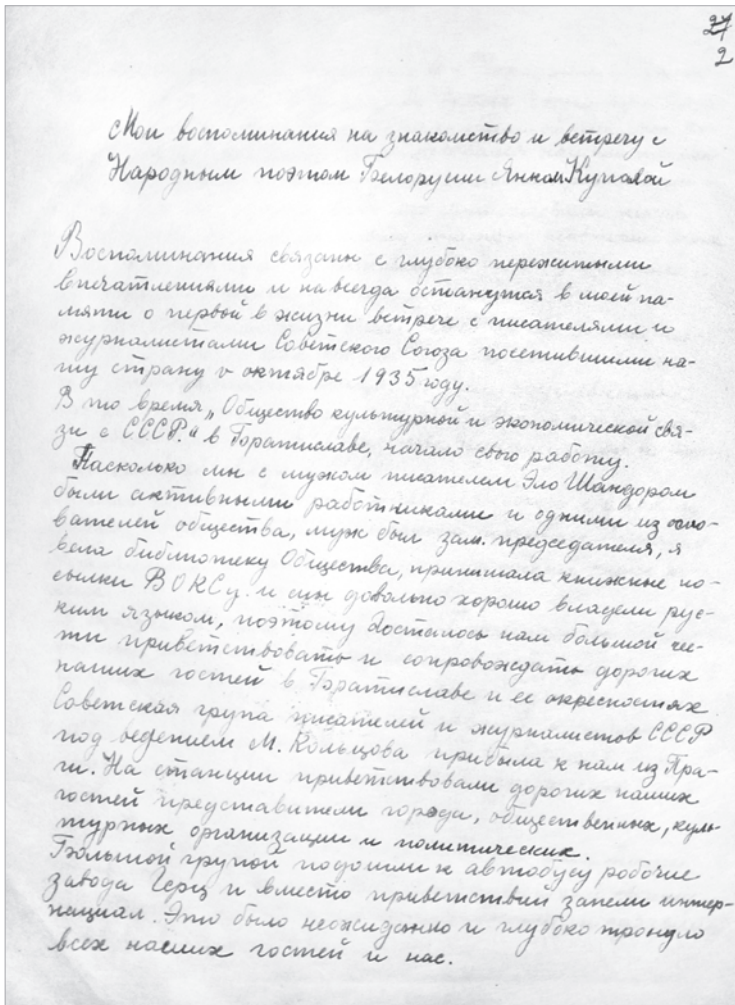 27
2
Мои воспоминания на знакомство и встречу с
Народным поэтом Белорусии Янкой Купалой
Воспоминания связаны с глубоко пережитыми
впечатлениями и навсегда останутся в моей па-
мяти о первой в жизни встрече с писателями и
журналистами Советского Союза посетившими на-
шу страну в октябре 1935 году.
В то время „Общество культурной и экономической свя-
зи с СССР.“ в Братиславе, начало свою работу.
Насколько мы с мужом писателем Эло Шандором
были активными работниками и одними из осно-
вателей общества, муж был зам. председателя, я
вела библиотеку Общества, принимала книжные по-
сылки ВОКСу. и мы довольно хорошо владели рус-
ким языком, поэтому досталось нам большой чес-
ти приветствовать и сопровождать дорогих
наших гостей в Братиславе и ее окресностях
Советская група писателей и журналистов СССР
под ведением М. Кольцова прибыла к нам из Пра-
ги. На станции приветствовали дорогих наших
гостей представители города, общественных, куль-
турных организации и политических.
Большой групой подошли к автобусу робочие
завода Герц и вместо приветствий запели интер-
нециал. Это было неожиданно и глубоко тронуло
всех наших гостей и нас.